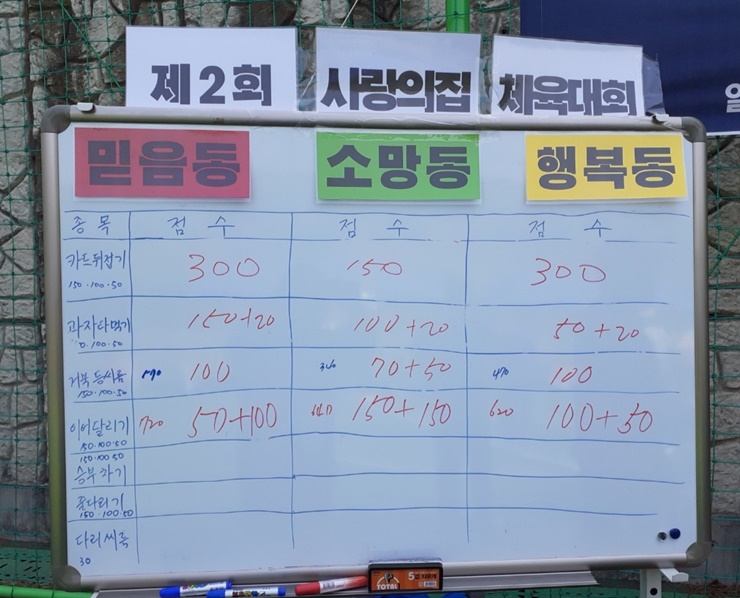 제2회 사랑의집 체육대회
일
믿음동 소망동 행복동
종목 점수 점수 점수
카드뒤집기 300 150 300
150·100·50
과자따먹기 150+20 100+20 50+20
0·100·50
거북등씨름 100 70+50 100
150·100·50
이어달리기 720 50+100 150+150 620 100+50
150·100·50
150·100·50
승부차기
줄다리기
150·100·50
다리씨름
30
TOTAL 5